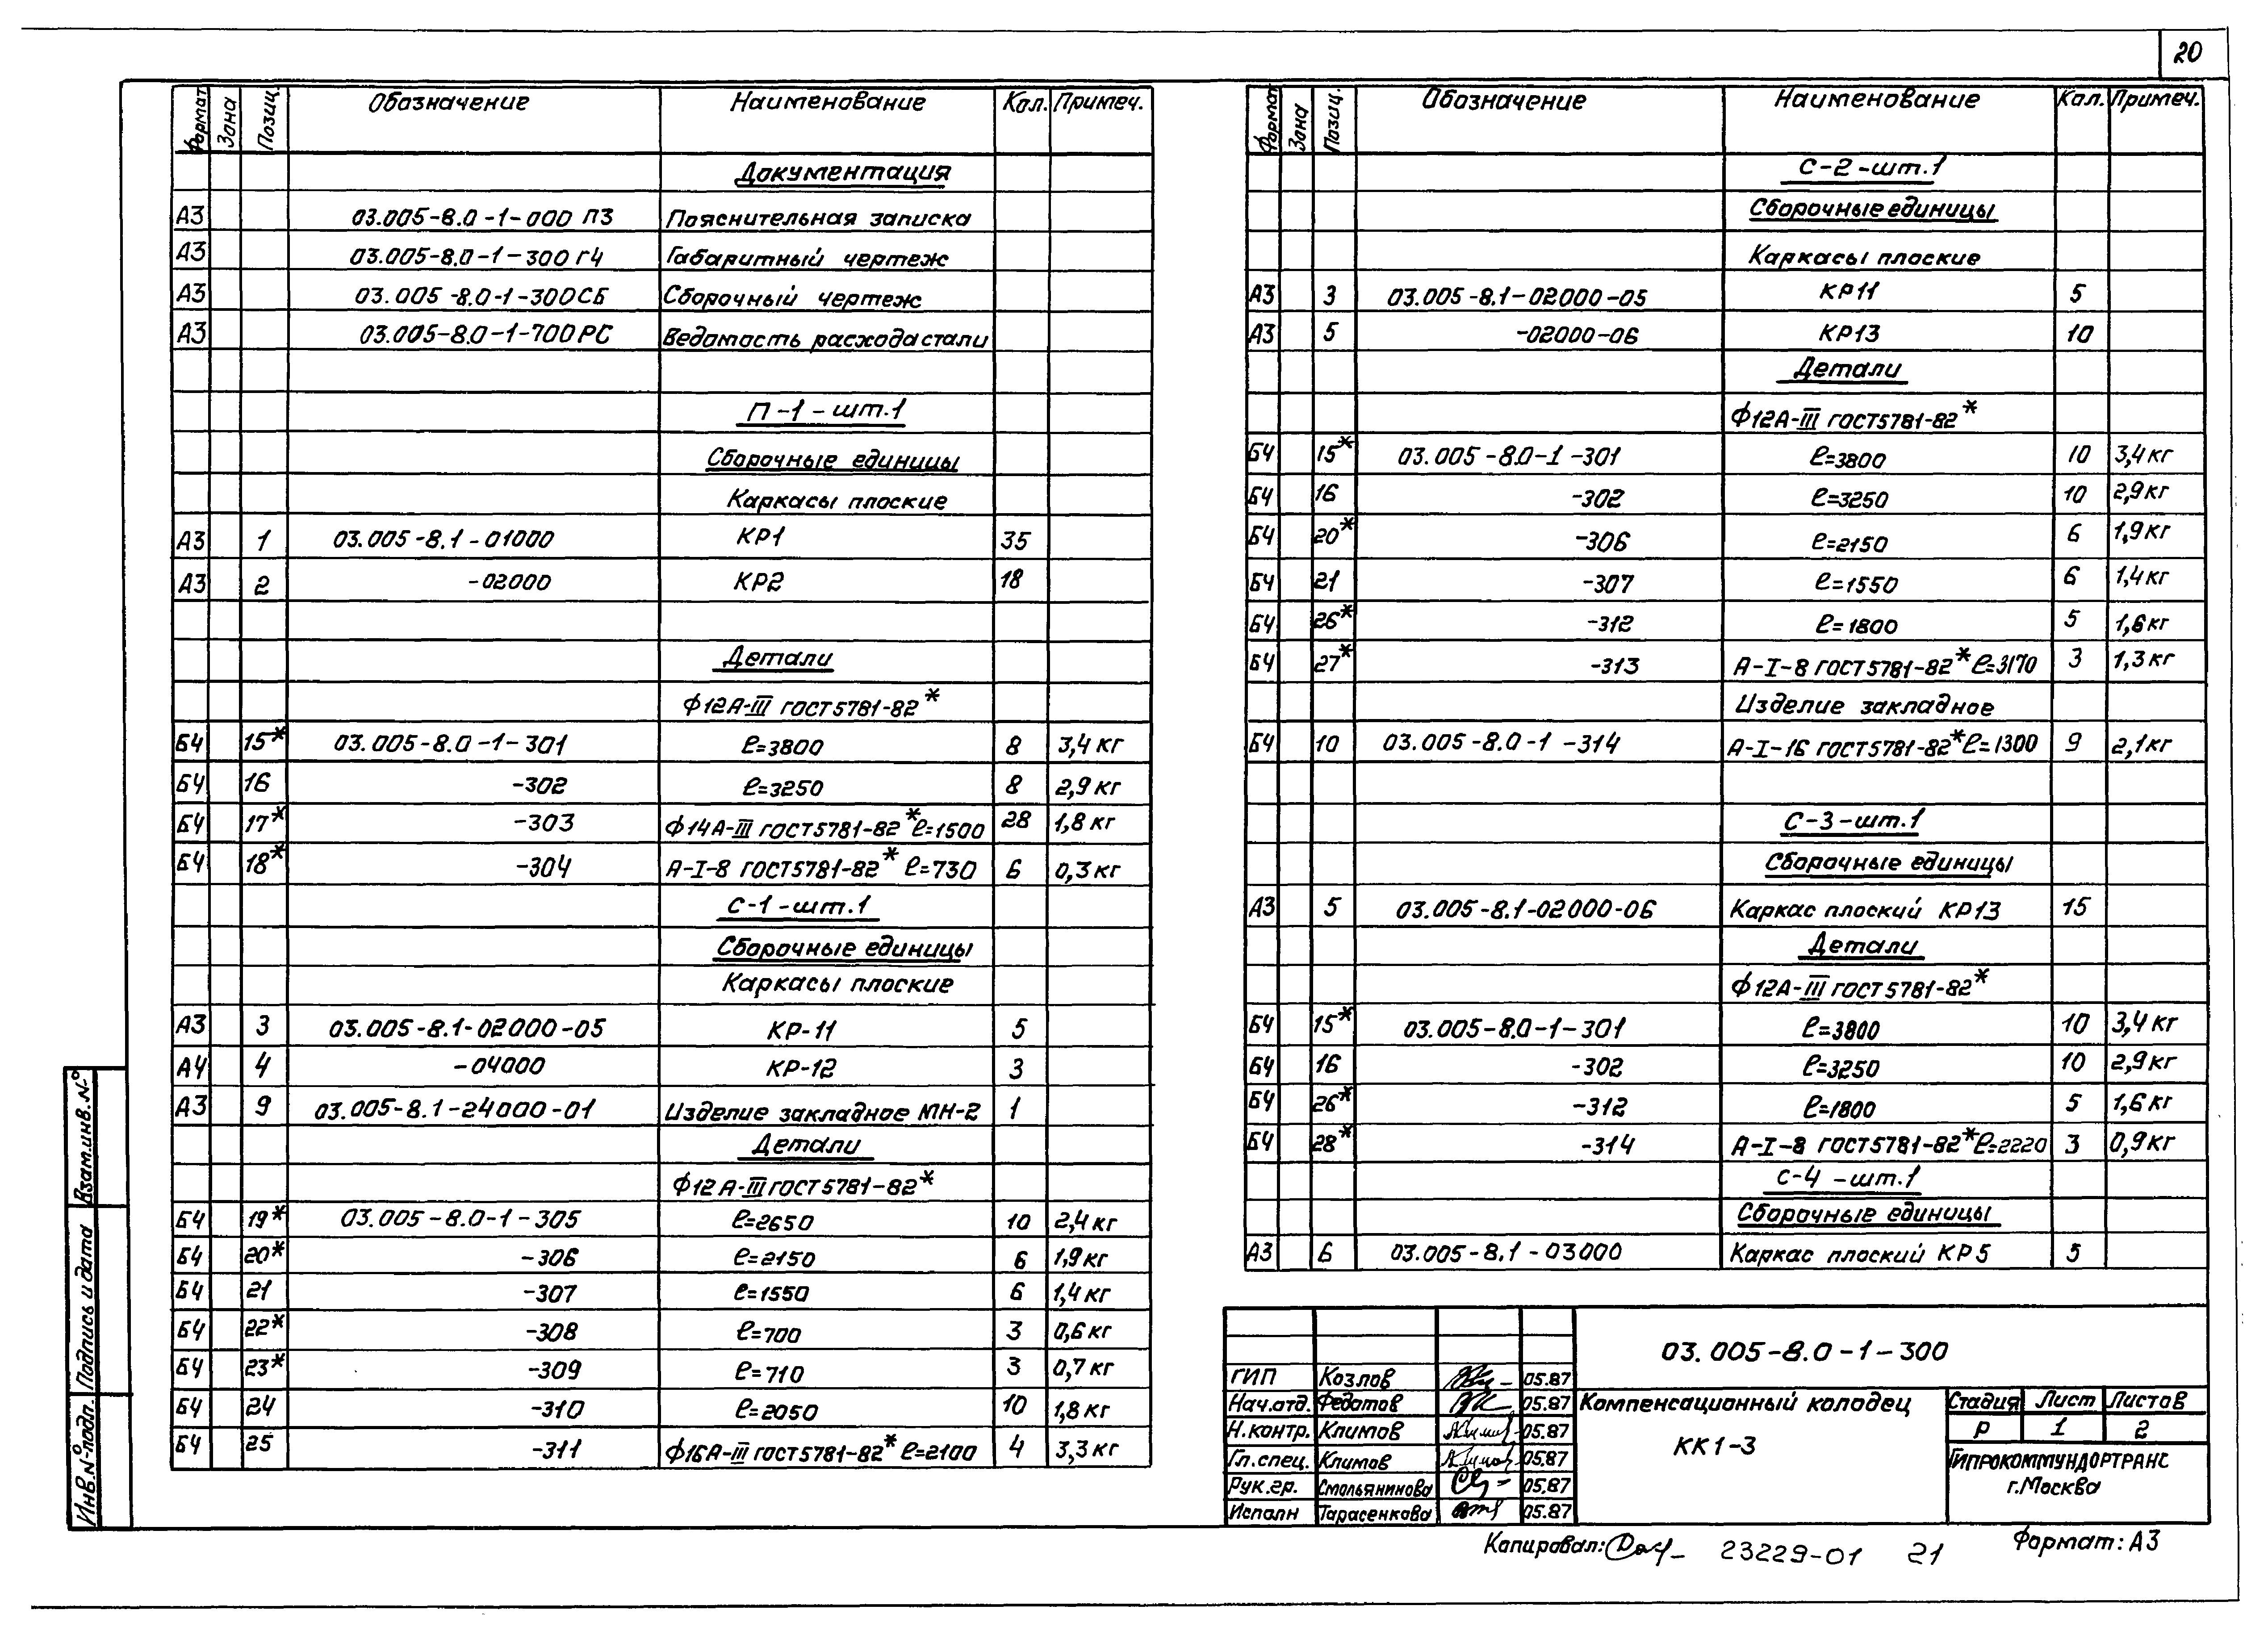 20
Формат Зона Позиц. Обозначение Наименование Кол. Примеч.
Документация
А3 03.005-8.0-1-000 ПЗ Пояснительная записка
А3 03.005-8.0-1-300 ГЧ Габаритный чертеж
А3 03.005-8.0-1-300СБ Сборочный чертеж
А3 03.005-8.0-1-700РС Ведомость расхода стали
П-1-шт.1
Сборочные единицы
Каркасы плоские
А3 1 03.005-8.1-01000 КР1 35
А3 2 -02000 КР2 18
Детали
ф12А-III ГОСТ5781-82*
БЧ 15* 03.005-8.0-1-301 ℓ=3800 8 3,4кг
БЧ 16 -302 ℓ=3250 8 2,9кг
БЧ 17* -303 ф14А-III ГОСТ5781-82* ℓ=1500 28 1,8кг
БЧ 18* -304 А-I-8 ГОСТ5781-82* ℓ=730 6 0,3кг
С-1-шт.1
Сборочные единицы
Каркасы плоские
А3 3 03.005-8.1-02000-05 КР-11 5
А4 4 -04000 КР-12 3
А3 9 03.005-8.1-24000-01 Изделие закладное МН-2 1
Детали
ф12А-III ГОСТ5781-82*
БЧ 19* 03.005-8.0-1-305 ℓ=2650 10 2,4кг
БЧ 20* -306 ℓ=2150 6 1,9кг
БЧ 21 -307 ℓ=1550 6 1,4кг
БЧ 22* -308 ℓ=700 3 0,6кг
БЧ 23* -309 ℓ=710 3 0,7кг
БЧ 24 -310 ℓ=2050 10 1,8кг
БЧ 25 -311 ф16А-III ГОСТ5781-82* ℓ=2100 4 3,3кг
Формат Зона Позиц. Обозначение Наименование Кол. Примеч.
С-2-шт.1
Сборочные единицы
Каркасы плоские
А3 3 03.005-8.1-02000-05 КР11 5
А3 5 -02000-06 КР13 10
Детали
ф12А-III ГОСТ5781-82*
БЧ 15* 03.005-8.0-1-301 ℓ=3800 10 3,4кг
БЧ 16 -302 ℓ=3250 10 2,9кг
БЧ 20* -306 ℓ=2150 6 1,9кг
БЧ 21 -307 ℓ=1550 6 1,4кг
БЧ 26* -312 ℓ=1800 5 1,6кг
БЧ 27* -313 А-I-8 ГОСТ5781-82* ℓ=3170 3 1,3кг
Изделие закладное
БЧ 10 03.005-8.0-1-314 А-I-16 ГОСТ5781-82* ℓ=1300 9 2,1кг
С-3-шт.1
Сборочные единицы
А3 5 03.005-8.1-02000-06 Каркас плоский КР13 15
Детали
ф12А-III ГОСТ5781-82*
БЧ 15* 03.005-8.0-1-301 ℓ=3800 10 3,4кг
БЧ 16 -302 ℓ=3250 10 2,9кг
БЧ 26* -312 ℓ=1800 5 1,6кг
БЧ 28* -314 А-I-8 ГОСТ5781-82* ℓ=2220 3 0,9кг
С-4-шт.1
Сборочные единицы
А3 6 03.005-8.1-03000 Каркас плоский КР5 5
03.005-8.0-1-300
ГИП Козлов 05.87
Нач.отд. Федотов 05.87
Н.контр. Климов 05.87
Гл.спец. Климов 05.87
Рук.гр. Смольянинова 05.87
Исполн Тарасенкова 05.87
Компенсационный колодец
КК1-3
Стадия Лист Листов
Р 1 2
ГИПРОКОММУНДОРТРАНС
г.Москва
Взам.инв.№
Подпись и дата
Инв.№подл.
Копировал: 23229-01 21 Формат: А3